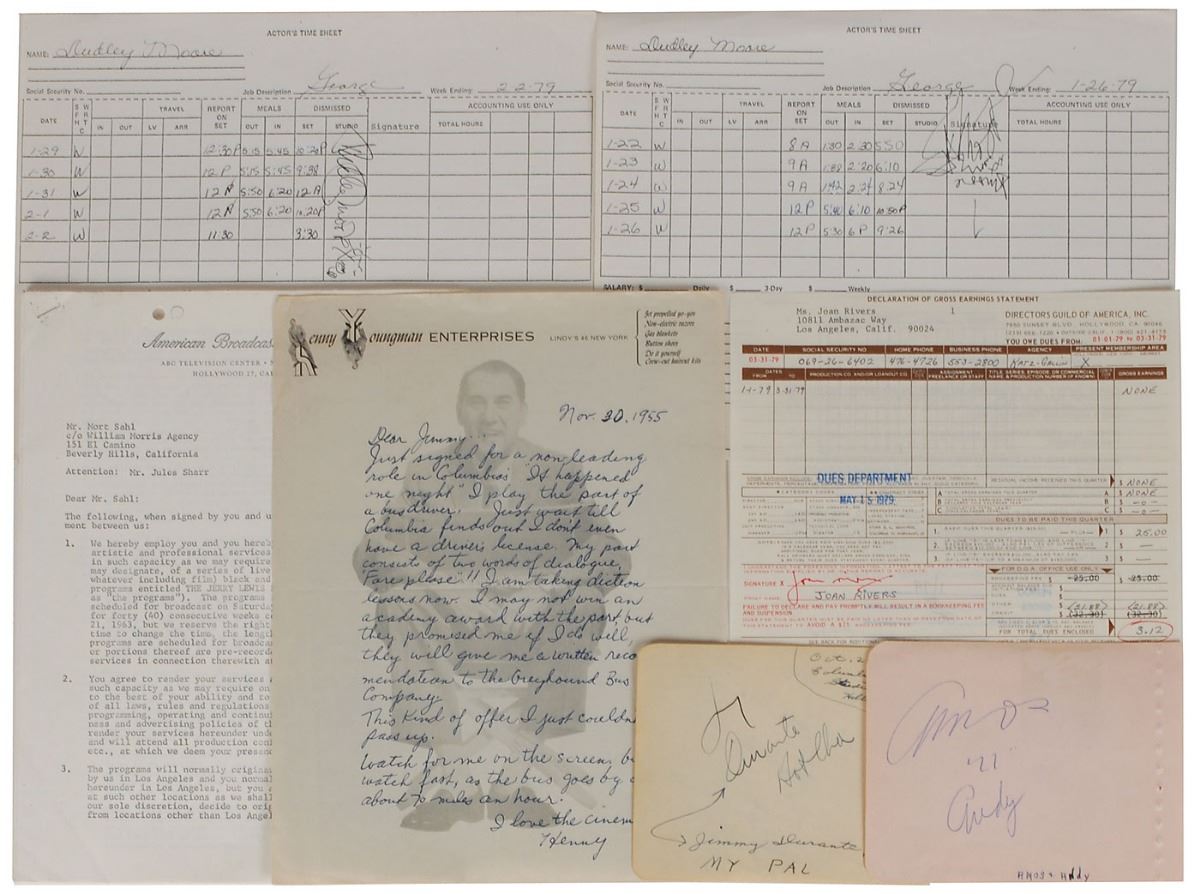 ACTOR'S TIME SHEET
NAME: Dudley Moore
Social Security No.
Job Description George
Week Ending: 2-2-79
DATE S W F R H T C TRAVEL REPORT ON SET MEALS DISMISSED Signature ACCOUNTING USE ONLY
IN OUT LV ARR OUT IN SET STUDIO TOTAL HOURS
1-29 W 12:30P 5:15 5:45 10:20P
1-30 W 12 P 5:15 5:45 9:38
1-31 W 12 N 5:50 6:20 12 A
2-1 W 12 N 5:50 6:20 10:20P
2-2 W 11:30 3:30
ACTOR'S TIME SHEET
NAME: Dudley Moore
Social Security No.
Job Description George
Week Ending: 1-26-79
DATE TRAVEL REPORT ON SET MEALS DISMISSED Signature ACCOUNTING USE ONLY
IN OUT LV ARR OUT IN SET STUDIO TOTAL HOURS
1-22 W 8 A 1:30 2:30 5:50
1-23 W 9 A 2:20 6:10
1-24 W 9 A 1:42 2:24 8:24
1-25 W 12P 5:40 6:10 10:50P
1-26 W 12P 5:30 6P 9:26
SALARY: $ Daily $ 3-Day $ Weekly
American Broadcas
ABC TELEVISION CENTER •
HOLLYWOOD 27, CAL
Mr. Mort Sahl
c/o William Morris Agency
151 El Camino
Beverly Hills, California
Attention: Mr. Jules Sharr
Dear Mr. Sahl:
The following, when signed by you and u
ment between us:
1. We hereby employ you and you hereb
artistic and professional services
in such capacity as we may require
may designate, of a series of live
whatever including film) black and
programs entitled THE JERRY LEWIS
as "the programs"). The programs
scheduled for broadcast on Saturda
for forty (40) consecutive weeks c
21, 1963, but we reserve the right
time to change the time, the lengt
programs are scheduled for broadca
or portions thereof are pre-record
services in connection therewith a
2. You agree to render your services a
such capacity as we may require on
to the best of your ability and to
of all laws, rules and regulations
programming, operating and continui
ness and advertising policies of th
render your services hereunder unde
and will attend all production conf
etc., at which we deem your presenc
3. The programs will normally origina
by us in Los Angeles and you normal
hereunder in Los Angeles, but you a
at such other locations as we shall
our sole discretion, decide to orig
from locations other than Los Angel
Henny Youngman ENTERPRISES
LINDY'S 46 NEW YORK
Jet propelled yo-yos
Non-electric razors
Gas blankets
Button shoes
Do it yourself
Crew-cut haircut kits
Nov. 30, 1955
Dear Jimmy..
Just signed for a non leading
role in Columbia's "It happened
one night" I play the part of
a bus driver. Just wait till
Columbia finds out I don't even
have a drivers license. My part
consists of two words of dialogue,
"Fare please"!! I am taking diction
lessons now. I may not win an
academy award with the part, but
they promised me if I do well,
they will give me a written reco
mendation to the Greyhound Bus
Company.
This kind of offer I just couldn
pass up.
Watch for me on the screen, b
watch fast, as the bus goes by a
about 70 miles an hour.
I love the cinem
Henny
DECLARATION OF GROSS EARNINGS STATEMENT
Ms. Joan Rivers 1
10811 Ambazac Way
Los Angeles, Calif. 90024
DIRECTORS GUILD OF AMERICA, INC.
7950 SUNSET BLVD., HOLLYWOOD, CA. 90046
YOU OWE DUES FROM: 01-01-79 to 03-31-79
DATE SOCIAL SECURITY NO. HOME PHONE BUSINESS PHONE AGENCY PRESENT MEMBERSHIP AREA
03-31-79 069-26-6402 476-4726 553-2800 Katz-Gallin X
DATES FROM TO PRODUCTION CO. AND/OR LOANOUT CO. ASSIGNMENT FREELANCE OR STAFF GROSS EARNINGS
1-1-79 3-31-79 NONE
DUES DEPARTMENT
MAY 15 1979
RESIDUAL INCOME RECEIVED THIS QUARTER $ NONE
A $ NONE
B $ -0-
C $ -0-
DUES TO BE PAID THIS QUARTER
1. $ 25.00
2. $ —
3. $ —
FOR D.G.A. OFFICE USE ONLY
SIGNATURE X Joan Rivers
JOAN RIVERS
FAILURE TO DECLARE AND PAY PROMPTLY WILL RESULT IN A BOOKKEEPING FEE
AND SUSPENSION
25.00 $ 25.00
OTHER (21.88) (21.88)
(32.30) (32.30)
FOR TOTAL DUES ENCLOSED $ 3.12
Oct. 2
Columbia
Jimmy Durante
MY PAL
Amos
'n'
Andy
AMOS & Andy